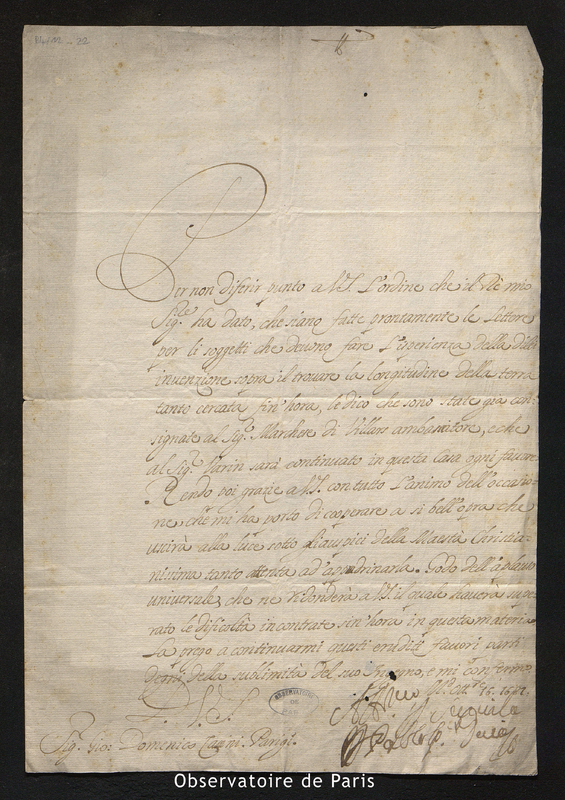 Per non diferir punto a V.S. l'ordine che il Rè mio
Sig.re ha dato, che siano fatte prontamente le lettere
per li soggetti che devono fare l'esperienza della di lei
invenzione sopra il trovare la longitudine della terra
tanto cercata fin'hora, le dico che sono state già con-
signate al Sig.r Marchese di Villars ambasciatore, e che
al Sig.r Varin sarà continuato in questa Casa ogni favore.
Rendo poi grazie a V.S. con tutto l'animo dell'occasio-
ne, che mi ha porto di cooperare a si bell'opra che
uscirà alla luce sotto gl'auspici della Maestà Christia-
nissima tanto attenta ad'apadrinarla. Godo dell'aplauso
universale, che ne ridonderà a V.S. il quale haverà supe-
rato le dificoltà incontrate sin'hora in questa materia
La prego a continuarmi questi eruditi favori parti
degni della sublimità del suo Ingegno, e mi confermo
D. V. S.
Sig. Gio: Domenico Cassini. Parigi.
OBSERVATOIRE
DE
PARIS
Observatoire de Paris